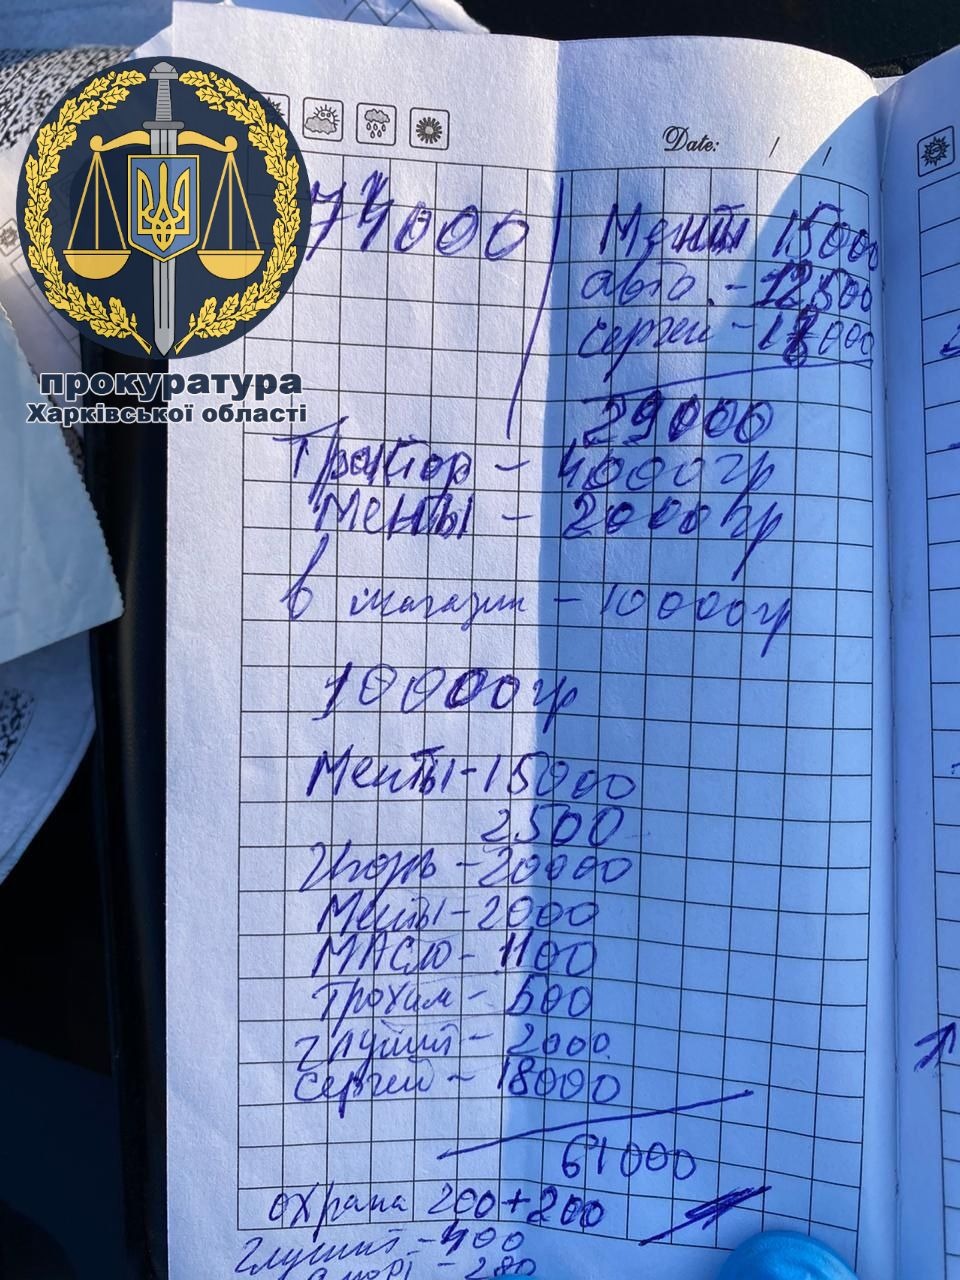 прокуратура
Харківської області
Date: / /
74000
Менты 15000
авто. - 12500
Сергей - 18000
29000
Трактор - 4000гр
Менты - 2000гр
в магазин - 10000гр
10000гр
Менты - 15000
2500
Игорь - 20000
Менты - 2000
МАСЛО - 1100
Трохам - 500
Глуший - 2000
Сергей - 18000
61000
охрана 200+200
Глуший - 400
280